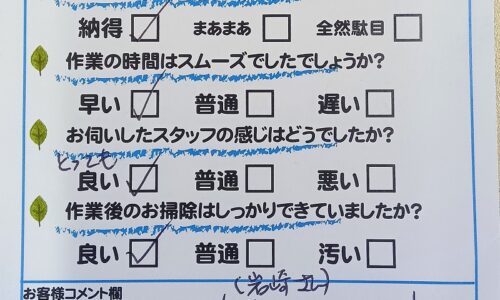 納得 まあまあ 全然駄目
作業の時間はスムーズでしたでしょうか?
早い 普通 遅い
お伺いしたスタッフの感じはどうでしたか?
とっても
良い 普通 悪い
作業後のお掃除はしっかりできていましたか?
良い 普通 汚い
お客様コメント欄